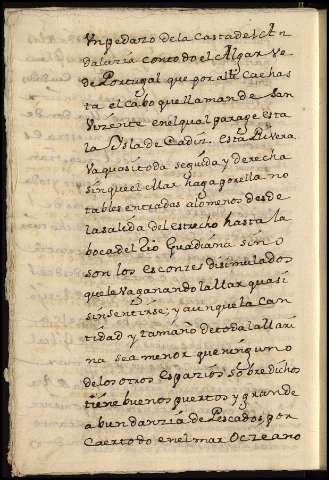 Vn pedazo de la Casta del An
daluzia con todo el Algar Ve
de Portugal que por alli Cae has
ta el Cabo que llaman de San
Vizente en el qual parage esta
la Ysla de Cadiz. Esta Rivera
Va quasi toda seguida y derecha
sin que el Mar haga por ella no
tables entradas a lo menos desde
la salida del estrecho hasta la
boca del Rio Guadiana sino
son los esconzes disimulados
que le Va ganando la Mar quasi
sin sentirse; y aunque la Can
tidad y tamaño de toda la Mari
na sea menor que ninguno
de los otros espazios sobredichos
tiene buenos puertos y grande
abundanzia de Pescados por
Caer todo en el mar Oczeano